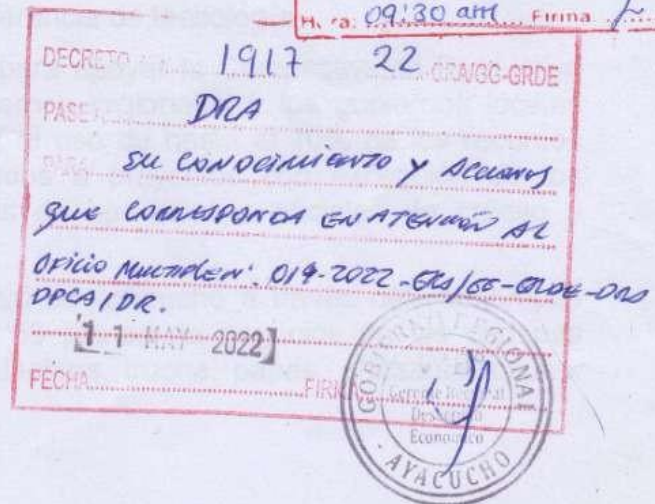 H. ra: 09:30 am Firma
DECRETO 1917 22 GRA/GG-GRDE
PASE A DRA
PARA SU CONOCIMIENTO Y ACCIONES
QUE CORRESPONDA EN ATENCIÓN AL
OFICIO MULTIPLE N° 019-2022-GRA/GG-GRDE-DRA
DPCA/DR.
11 MAY 2022
FECHA FIRMA
GOBIERNO REGIONAL
Gerente Regional
Desarrollo
Económico
AYACUCHO